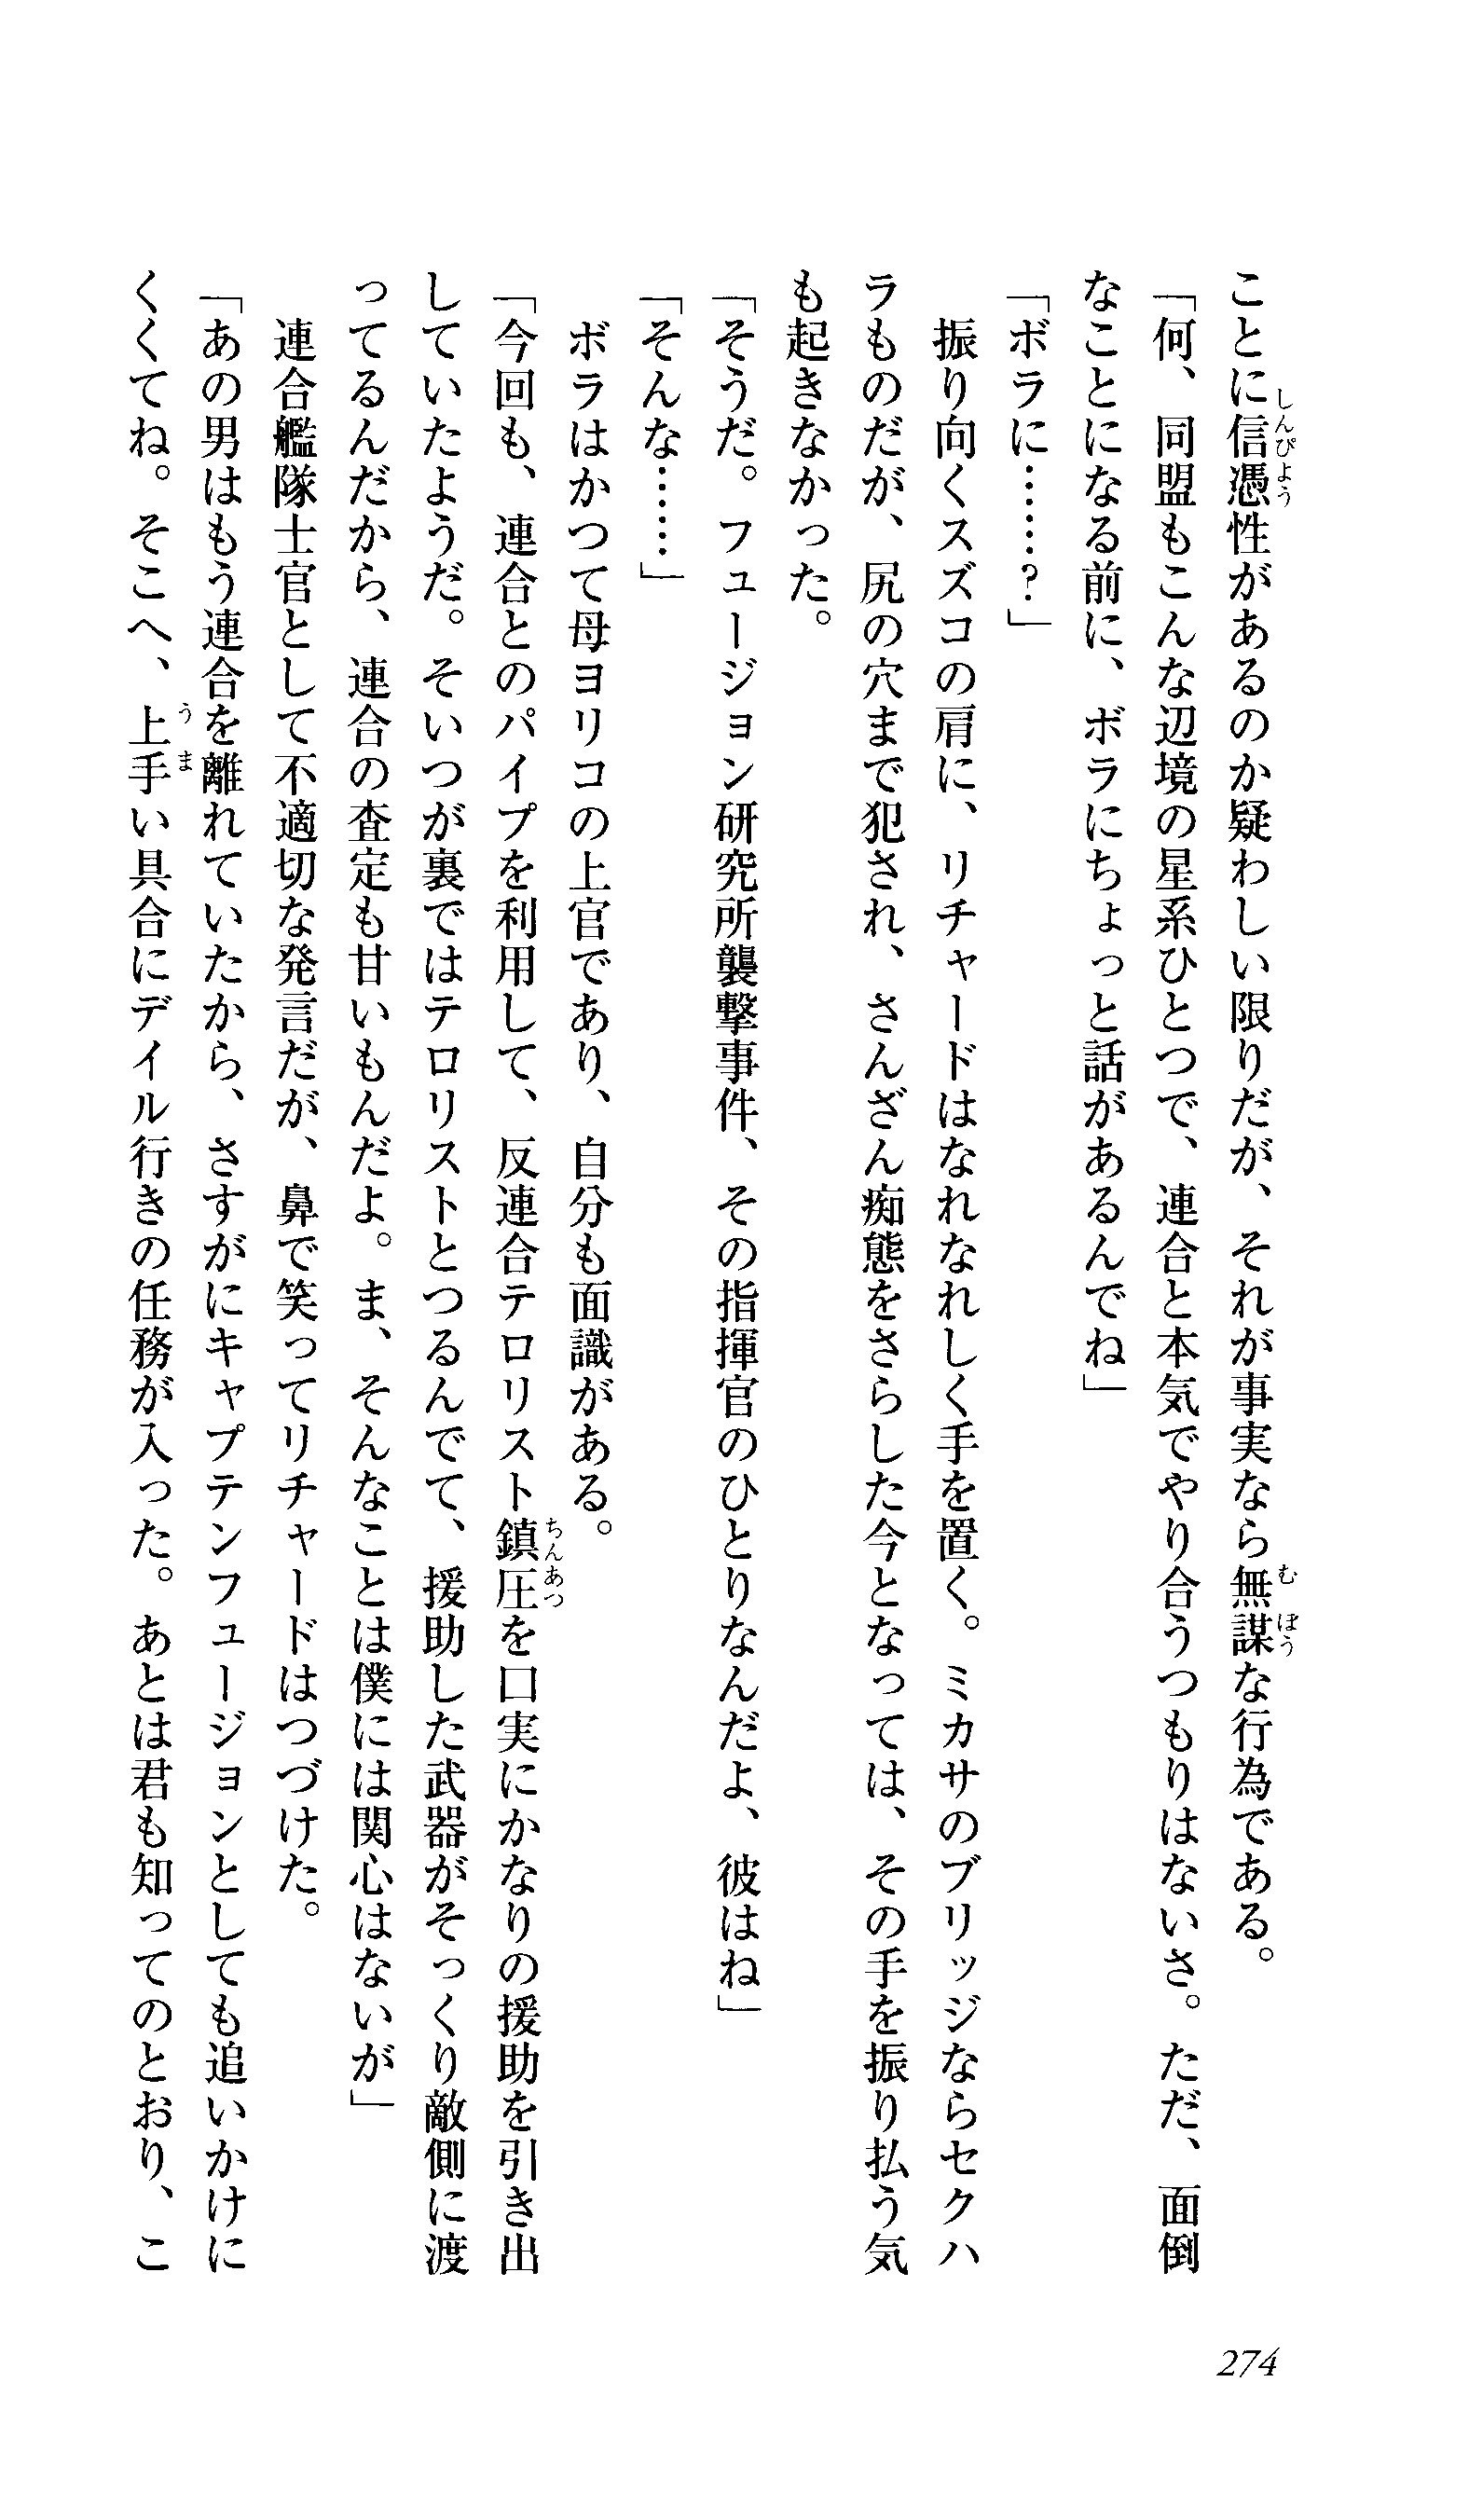 ことに信憑性があるのか疑わしい限りだが、それが事実なら無謀な行為である。
「何、同盟もこんな辺境の星系ひとつで、連合と本気でやり合うつもりはないさ。ただ、面倒
なことになる前に、ボラにちょっと話があるんでね」
「ボラに……？」
　振り向くスズコの肩に、リチャードはなれなれしく手を置く。ミカサのブリッジならセクハ
ラものだが、尻の穴まで犯され、さんざん痴態をさらした今となっては、その手を振り払う気
も起きなかった。
「そうだ。フュージョン研究所襲撃事件、その指揮官のひとりなんだよ、彼はね」
「そんな……」
　ボラはかつて母ヨリコの上官であり、自分も面識がある。
「今回も、連合とのパイプを利用して、反連合テロリスト鎮圧を口実にかなりの援助を引き出
していたようだ。そいつが裏ではテロリストとつるんでて、援助した武器がそっくり敵側に渡
ってるんだから、連合の査定も甘いもんだよ。ま、そんなことは僕には関心はないが」
　連合艦隊士官として不適切な発言だが、鼻で笑ってリチャードはつづけた。
「あの男はもう連合を離れていたから、さすがにキャプテンフュージョンとしても追いかけに
くくてね。そこへ、上手い具合にデイル行きの任務が入った。あとは君も知ってのとおり、こ
274